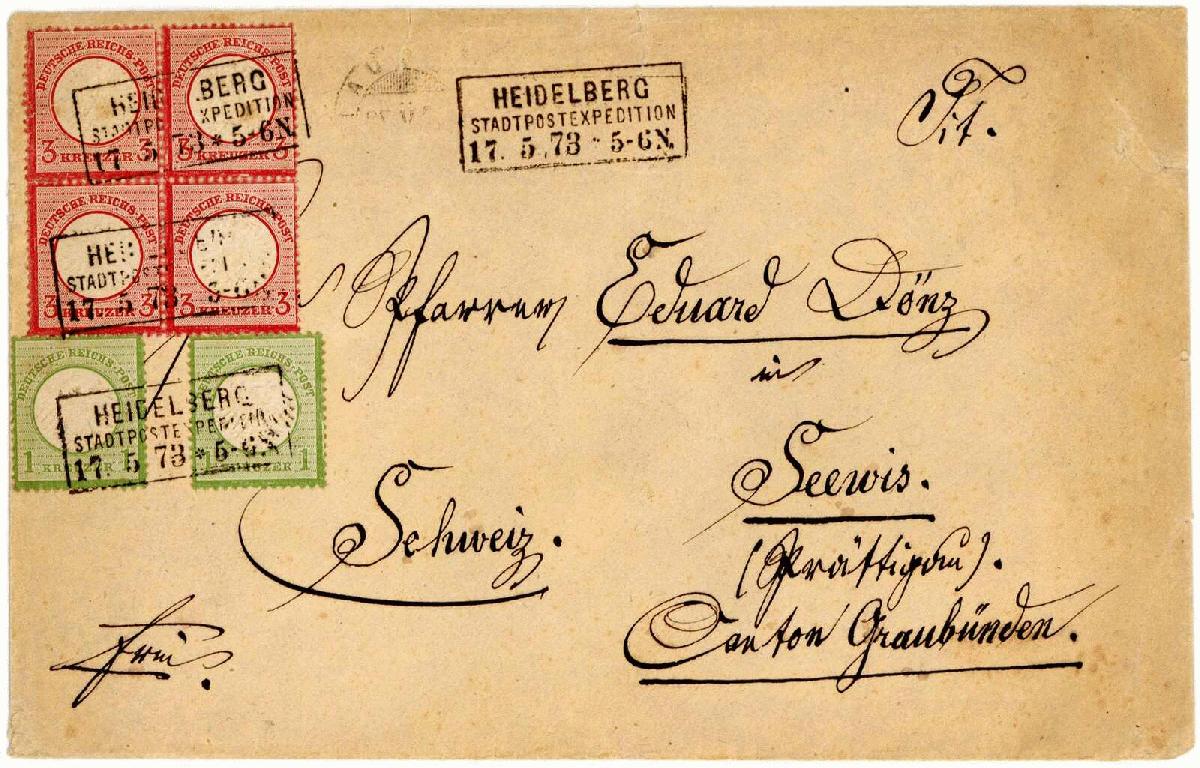 DEUTSCHE REICHS-POST
3 KREUZER 3
DEUTSCHE REICHS-POST
3 KREUZER 3
HEI
BERG
STADTPO
XPEDITION
17. 5
73 * 5-6N.
HEIDELBERG
STADTPOSTEXPEDITION
17. 5. 73 * 5-6N.
Tit.
DEUTSCHE REICHS-POST
3 KREUZER 3
DEUTSCHE REICHS-POST
3 KREUZER 3
HEI
STADTPOS
17. 5 73
5-6N
Pfarrer Eduard Dönz
in
DEUTSCHE REICHS-POST
1 KREUZER 1
DEUTSCHE REICHS-POST
1 KREUZER 1
HEIDELBERG
STADTPOSTEXPEDITION
17. 5 73 * 5-6N
Seewis.
Schweiz.
(Prättigau).
Canton Graubünden.
frei.